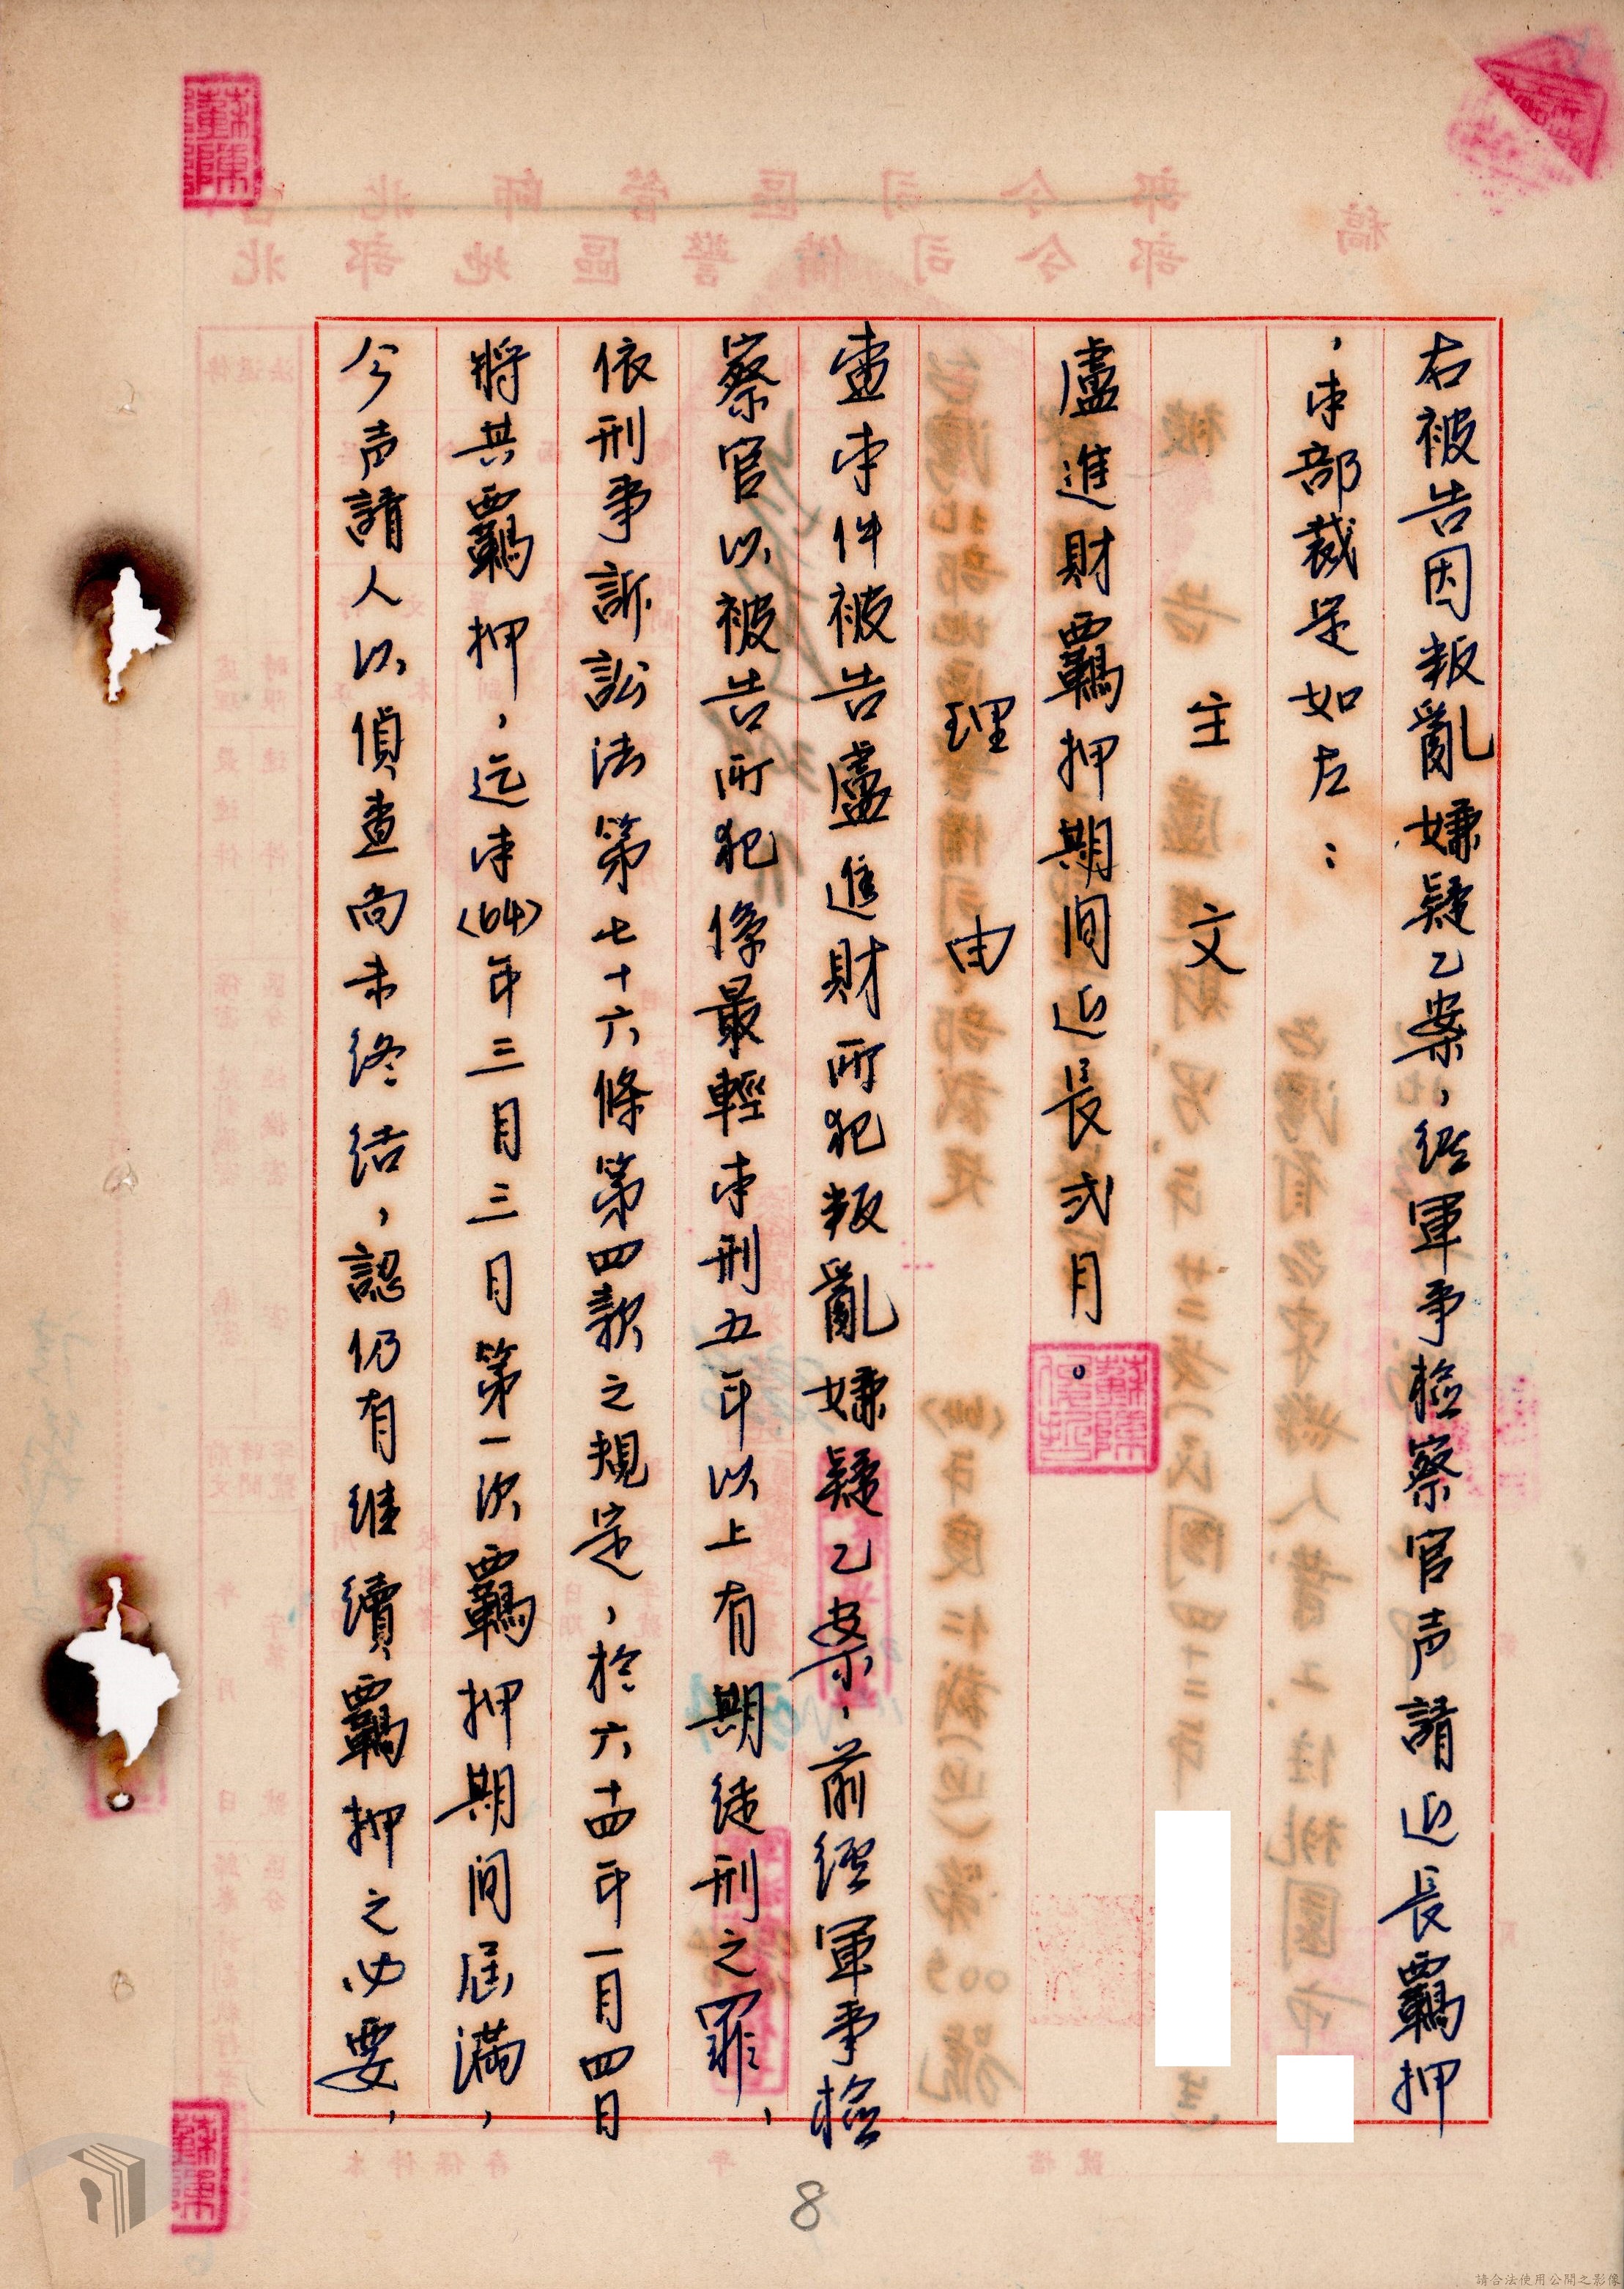 右被告因叛亂嫌疑乙案，經軍事檢察官声請延長羈押
，本部裁定如左：
主文
盧進財羈押期間延長弍月。
理由
查本件被告盧進財所犯叛亂嫌疑乙案，前經軍事檢
察官以被告所犯係最輕本刑五年以上有期徒刑之罪，
依刑事訴訟法第七十六條第四款之規定，於六十四年一月四日
將其羈押，迄本(64)年三月三日第一次羈押期間屆滿，
今声請人以偵查尚未終結，認仍有继續羈押之必要，
8
請合法使用公開之影像